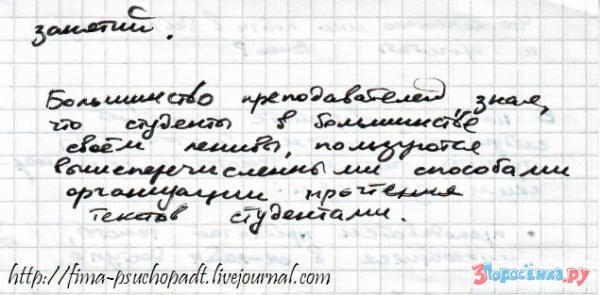 занятий.
Большинство преподавателей, зная,
что студенты в большинстве
своём ленивы, пользуются
вышеперечисленными способами
организации прочтения
текстов студентами.
http://fima-psuchopadt.livejournal.com
3Поросёнка.ру